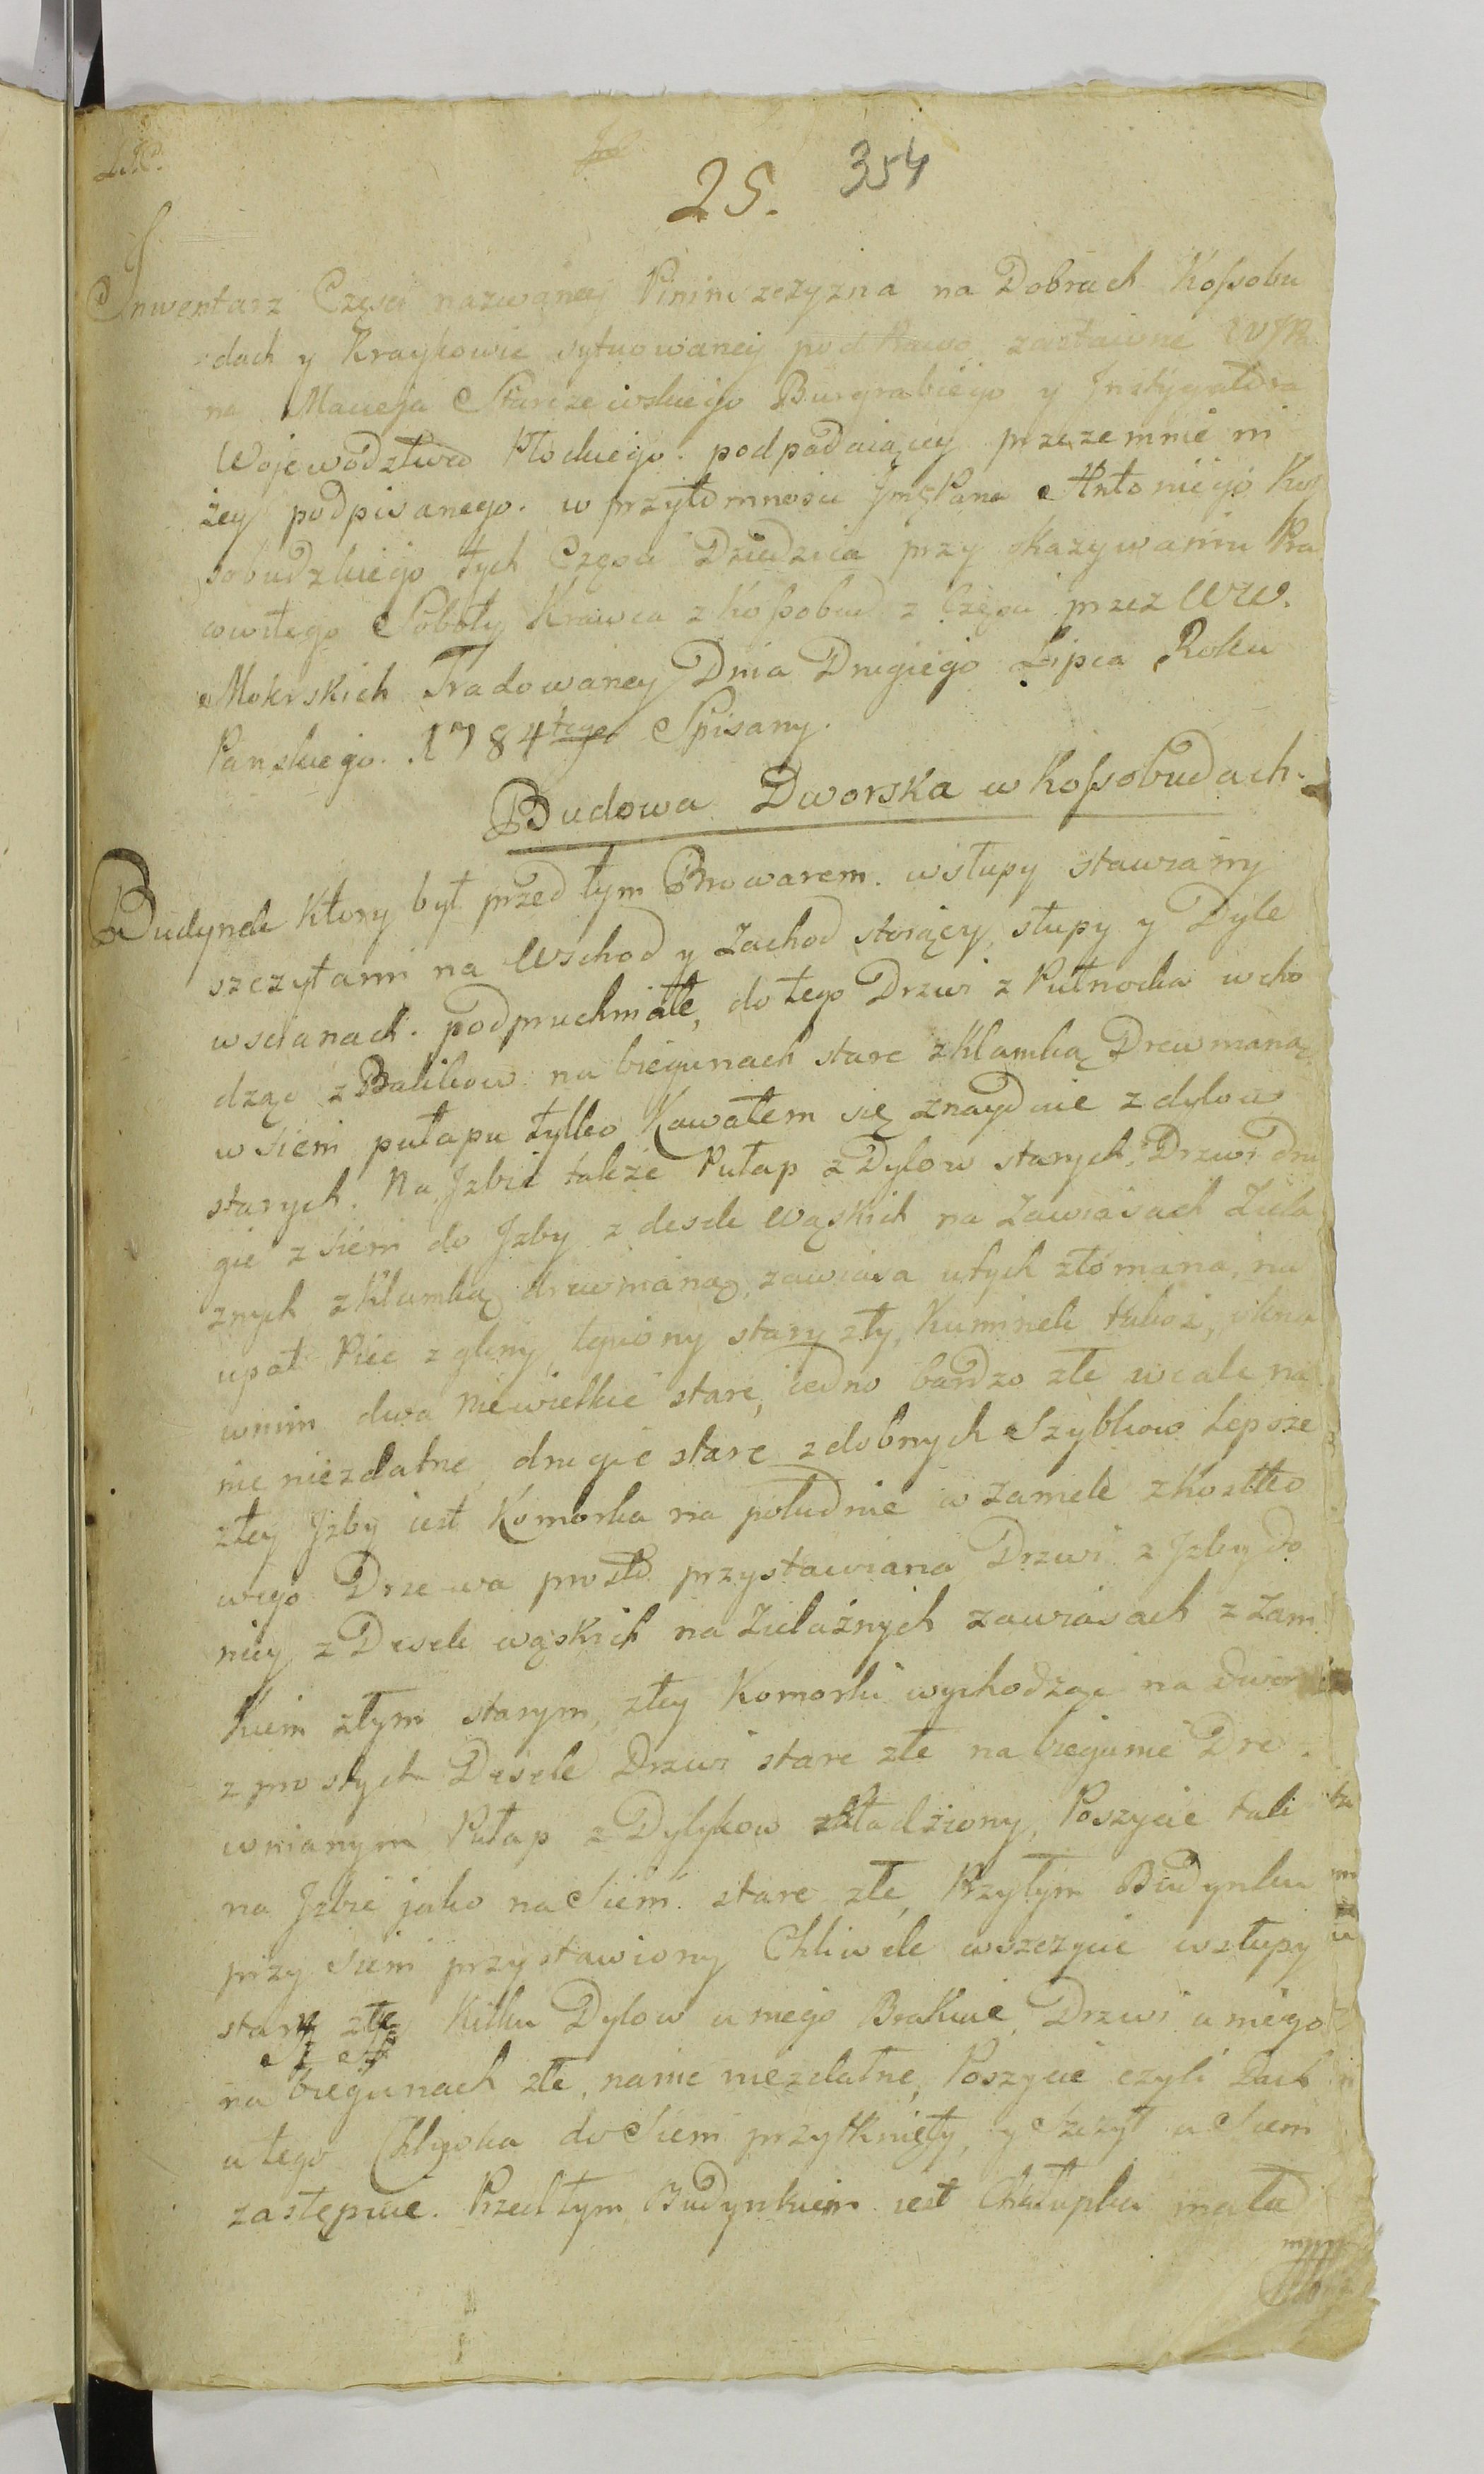 25. 354
Inwentarz Częsci nazwaney Pininszczyzna na Dobrach Kossobu
dach y Kraykowie sytuowaney pod Prawo zastawne WJP.
na Macieja Starzewskiego Burgrabiego y Instygatora
Wojewodztwa Płockiego. podpadaiącey przezemnie ni
żey podpisanego. w przytomnosci JmsPana Antoniego Kos
sobudzkiego tych Częsci Dziedzica przy okazywaniu Pra
cowitego Soboty Krawca z Kossobud z Częsci przez WW.
Mokrskich Tradowaney Dnia Drugiego Lipca Roku
Panskiego. 1784tego Spisany.
Budowa Dworska w Kossobudach.
Budynek Ktory był przed tym Browarem. w słupy stawiany
szczytami na Wschod y Zachod stoiący, słupy y Dyle
w scianach. podpruchniałe, do tego Drzwi z Pułnocka wcho
dząc z Balikow na biegunach stare z Klamką Drewnianą.
w sieni pułapu tylko Kawałem się znayduie z dylow
starych. Na Jzbie także Pułap z Dylow starych, Drzwi Dru
gie z sieni do Jzby z desek wąskich na Zawiasach Zela
znych z Klamką drewnianą, zawiasa u tych złomana, na
upał Piec z gliny lepiony stary zły, Kuminek takoż, okna
w nim dwa niewielkie stare, iedno bardzo złe wcale na
nic niezdatne, drugie stare z dobnych Szybkow Lepsze
z tey Jzby iest Komorka na południe w zamek z Kostko
wego Drzewa prosto przystawiana Drzwi z Jzby do
niey z Desek wąskich na Zielaźnych zawiasach z Zam
kiem złym starym, z tey Komorki wychodząc na dwor
z prostych Desek Drzwi stare złe na biegunie Dre
wnianym Pułap z Dylykow składziony, Poszycie tak
na Jzbie jako na Sieni stare złe, Przytym Budynku
przy sieni przystawiony Chliwek w szczycie w słupy
stary zły Kilku Dylow u niego Brakuie, Drzwi u niego
na biegunach złe, nanic niezdatne, Poszycie czyli Dach
u tego Chlywka do Sieni przytknięty, y Szczyt u Sieni
zastępuie. Przed tym Budynkiem iest Chałupka mała